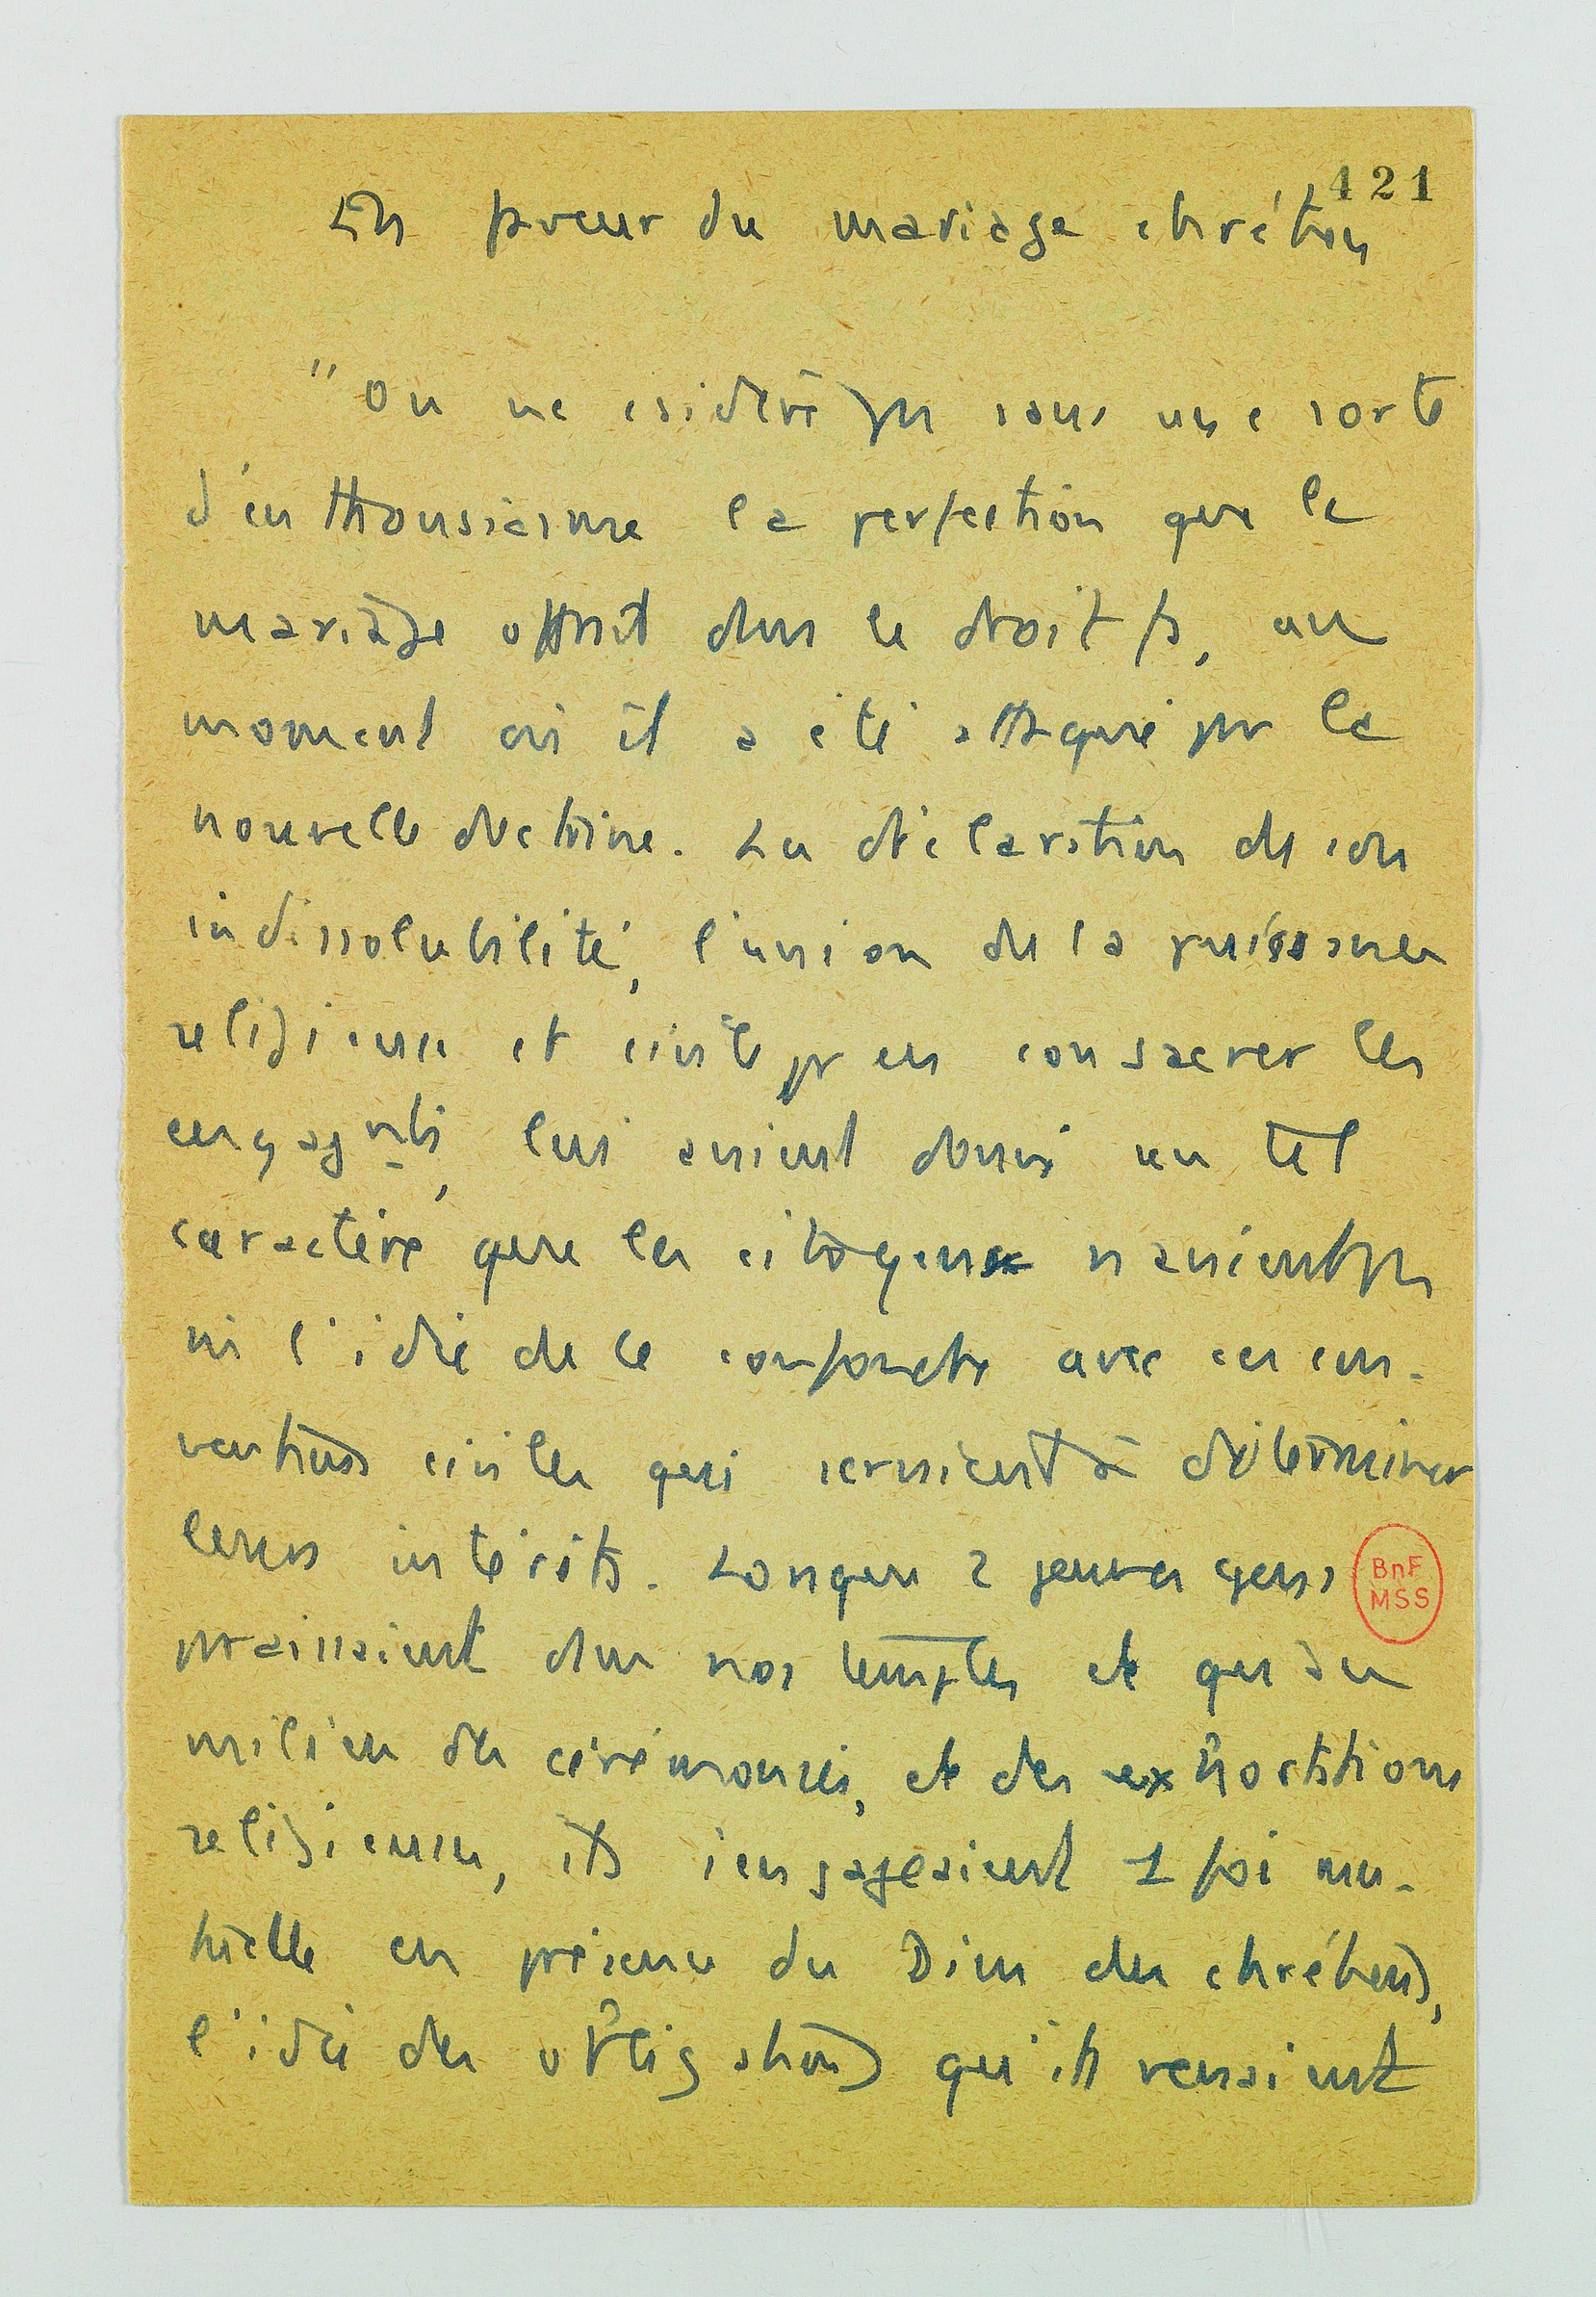 421
En faveur du mariage chrétien
"On ne csidère pas sans une sorte
d'enthousiasme la perfection que le
mariage offrait dans le droit fs, au
moment où il a été attaqué pr la
nouvelle doctrine. La déclaration de son
indissolubilité, l'union de la puissance
religieuse et civile pr en consacrer les
engagmts, lui avaient donné un tel
caractère que les citoyens n'avaient pas
ni l'idée de le confondre avec ces con-
ventions civiles qui servaient à déterminer
leurs intérêts. Lorsque 2 jeunes gens
praissaient dans nos temples et qu'au
milieu des cérémonies, et des exhortations
religieuses, ils s'engageaient 1 foi mu-
tuelle en présence du Dieu des chrétiens,
l'idée des obligations qu'ils venaient
BnF
MSS